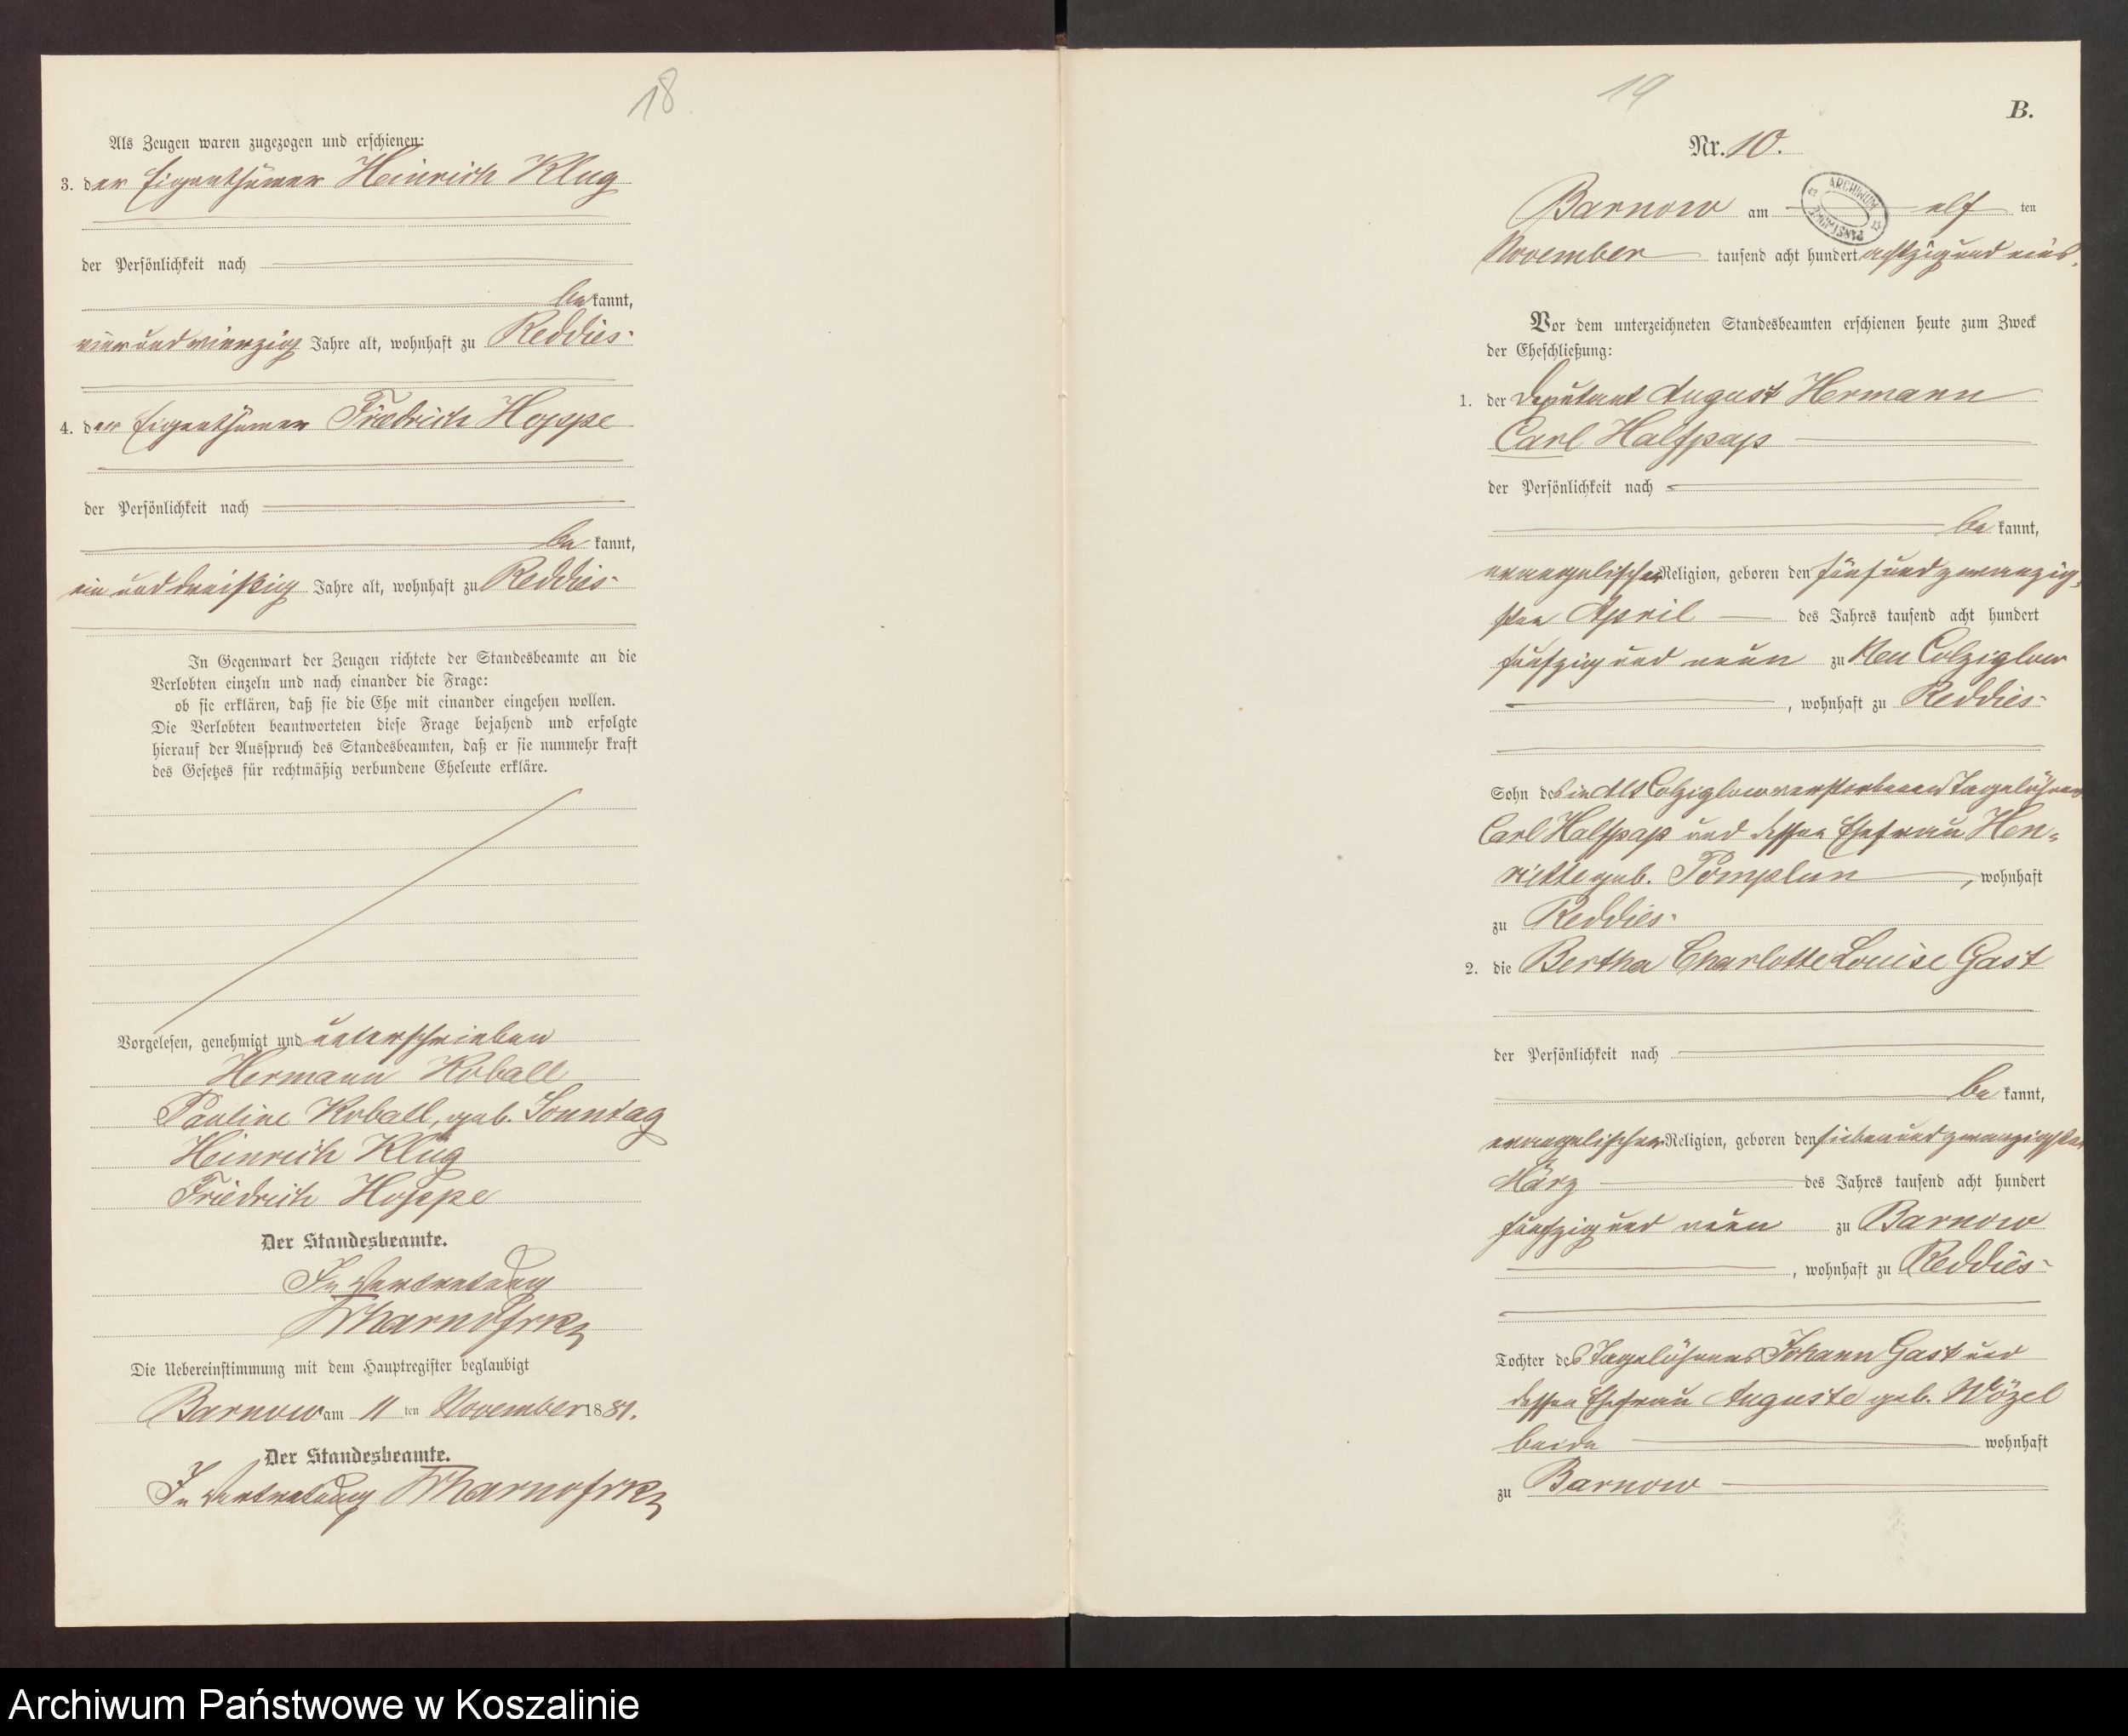 18
Als Zeugen waren zugezogen und erschienen:
3. der Eigenthümer Heinrich Klug
der Persönlichkeit nach
be kannt,
vier und vierzig Jahre alt, wohnhaft zu Reddies.
4. der Eigenthümer Friedrich Hoppe
der Persönlichkeit nach
be kannt,
ein und dreißig Jahre alt, wohnhaft zu Reddies.
In Gegenwart der Zeugen richtete der Standesbeamte an die
Verlobten einzeln und nach einander die Frage:
ob sie erklären, daß sie die Ehe mit einander eingehen wollen.
Die Verlobten beantworteten diese Frage bejahend und erfolgte
hierauf der Ausspruch des Standesbeamten, daß er sie nunmehr kraft
des Gesetzes für rechtmäßig verbundene Eheleute erkläre.
Vorgelesen, genehmigt und unterschrieben
Hermann Koball
Pauline Koball, geb. Sonntag
Heinrich Klug
Friedrich Hoppe
Der Standesbeamte.
In Vertretung
Die Uebereinstimmung mit dem Hauptregister beglaubigt
Barnow am 11 ten November 1881.
Der Standesbeamte.
In Vertretung
19
B.
Nr. 10.
Barnow am elf ten
November tausend acht hundert achtzig und eins.
ARCHIWUM PAŃSTWOWE
Vor dem unterzeichneten Standesbeamten erschienen heute zum Zweck
der Eheschließung:
1. der Deputant August Hermann
Carl Halfpap
der Persönlichkeit nach
be kannt,
evangelischer Religion, geboren den fünf und zwanzig-
sten April des Jahres tausend acht hundert
fünfzig und neun zu Neu Colziglow
, wohnhaft zu Reddies.
Sohn des in Alt Colziglow verstorbenen Tagelöhners
Carl Halfpap und dessen Ehefrau Hen-
riette geb. Pomplun, wohnhaft
zu Reddies.
2. die Bertha Charlotte Louise Gast
der Persönlichkeit nach
be kannt,
evangelischer Religion, geboren den sieben und zwanzigsten
März des Jahres tausend acht hundert
fünfzig und neun zu Barnow
, wohnhaft zu Reddies.
Tochter des Tagelöhners Johann Gast und
dessen Ehefrau Auguste geb. Wözel
beide wohnhaft
zu Barnow
Archiwum Państwowe w Koszalinie